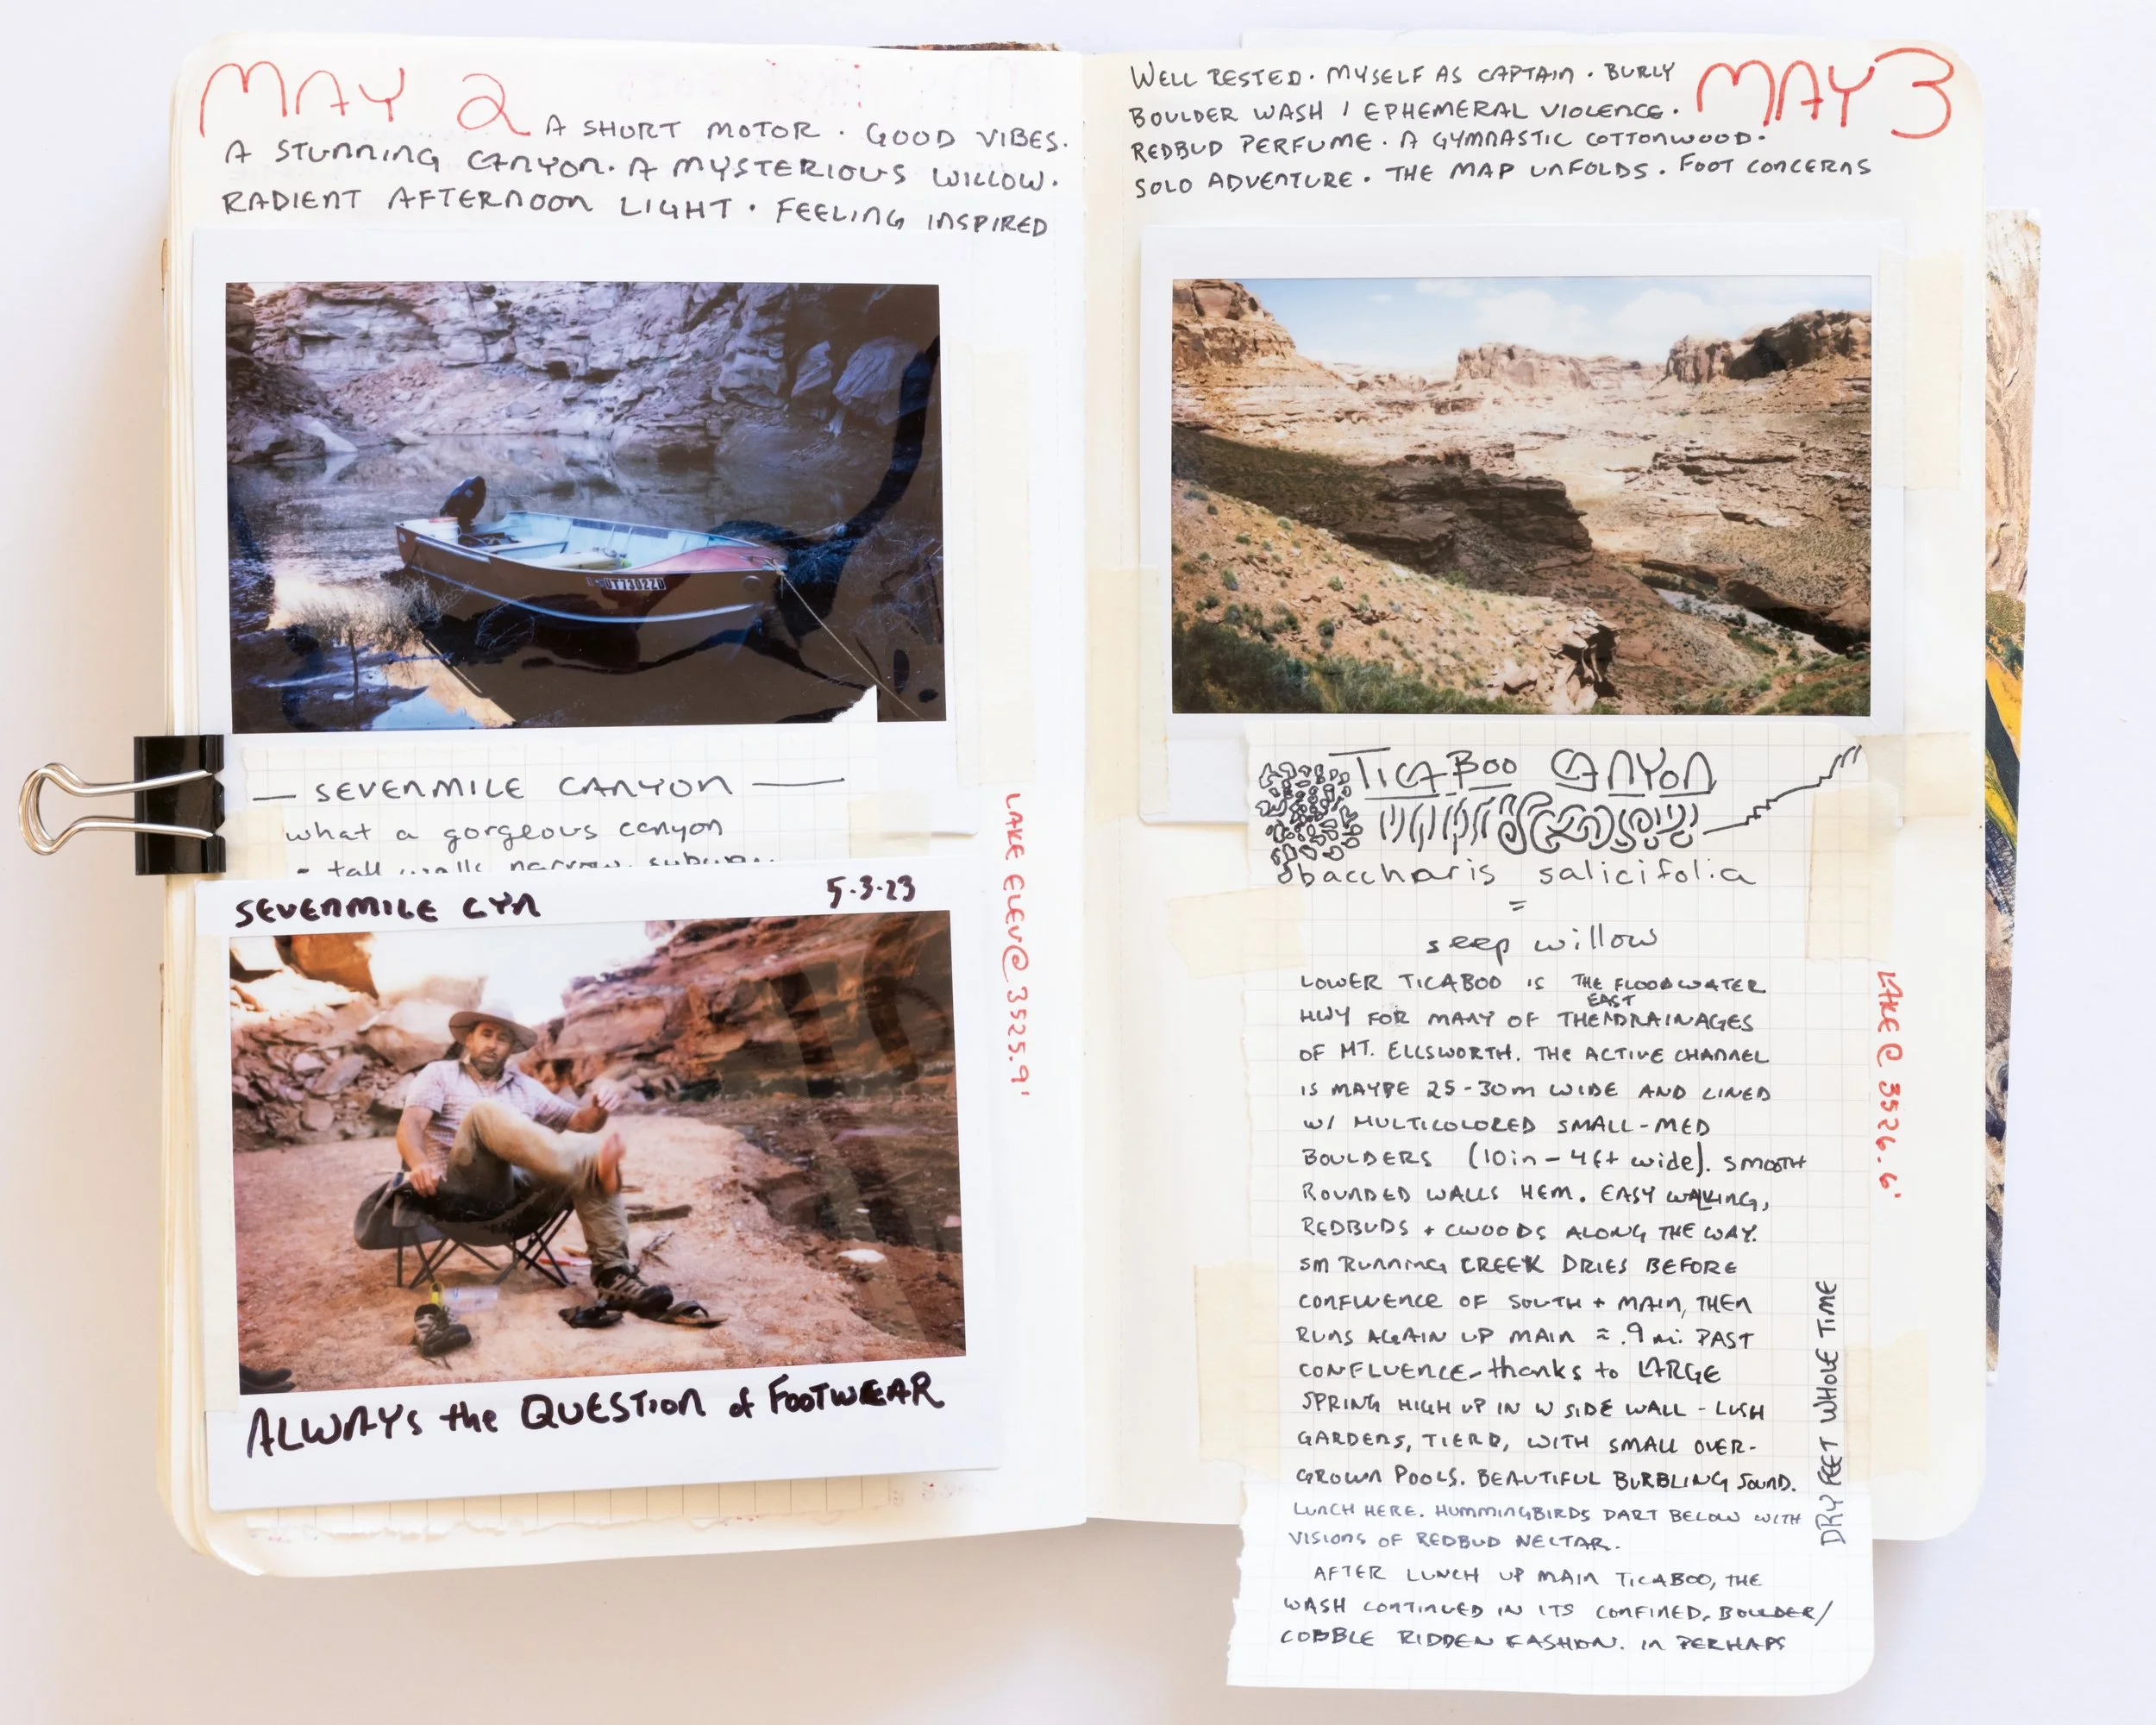 MAY 2
A SHORT MOTOR. GOOD VIBES.
A STUNNING CANYON. A MYSTERIOUS WILLOW.
RADIENT AFTERNOON LIGHT. FEELING INSPIRED
UT7302ZD
— SEVENMILE CANYON —
what a gorgeous canyon
- tall walls, narrow,
SEVENMILE CYN 5.3.23
ALWAYS the QUESTION of FOOTWEAR
LAKE ELEV @ 3525.9'
MAY 3
WELL RESTED. MYSELF AS CAPTAIN. BURLY
BOULDER WASH / EPHEMERAL VIOLENCE.
REDBUD PERFUME. A GYMNASTIC COTTONWOOD.
SOLO ADVENTURE. THE MAP UNFOLDS. FOOT CONCERNS
TICABOO CANYON
baccharis salicifolia
=
seep willow
LOWER TICABOO IS THE FLOODWATER
HWY FOR MANY OF THE EAST DRAINAGES
OF MT. ELLSWORTH. THE ACTIVE CHANNEL
IS MAYBE 25-30m WIDE AND LINED
W/ MULTICOLORED SMALL-MED
BOULDERS (10in - 4ft wide). SMOOTH
ROUNDED WALLS HEM. EASY WALKING,
REDBUDS + CWOODS ALONG THE WAY.
SM RUNNING CREEK DRIES BEFORE
CONFLUENCE OF SOUTH + MAIN, THEN
RUNS AGAIN UP MAIN ≈ .9 mi. PAST
CONFLUENCE - thanks to LARGE
SPRING HIGH UP IN W SIDE WALL - LUSH
GARDENS, TIERD, WITH SMALL OVER-
GROWN POOLS. BEAUTIFUL BURBLING SOUND.
LUNCH HERE. HUMMINGBIRDS DART BELOW WITH
VISIONS OF REDBUD NECTAR.
AFTER LUNCH UP MAIN TICABOO, THE
WASH CONTINUED IN ITS CONFINED, BOULDER/
COBBLE RIDDEN FASHION. IN PERHAPS
DRY FEET WHOLE TIME
LAKE @ 3526.6'